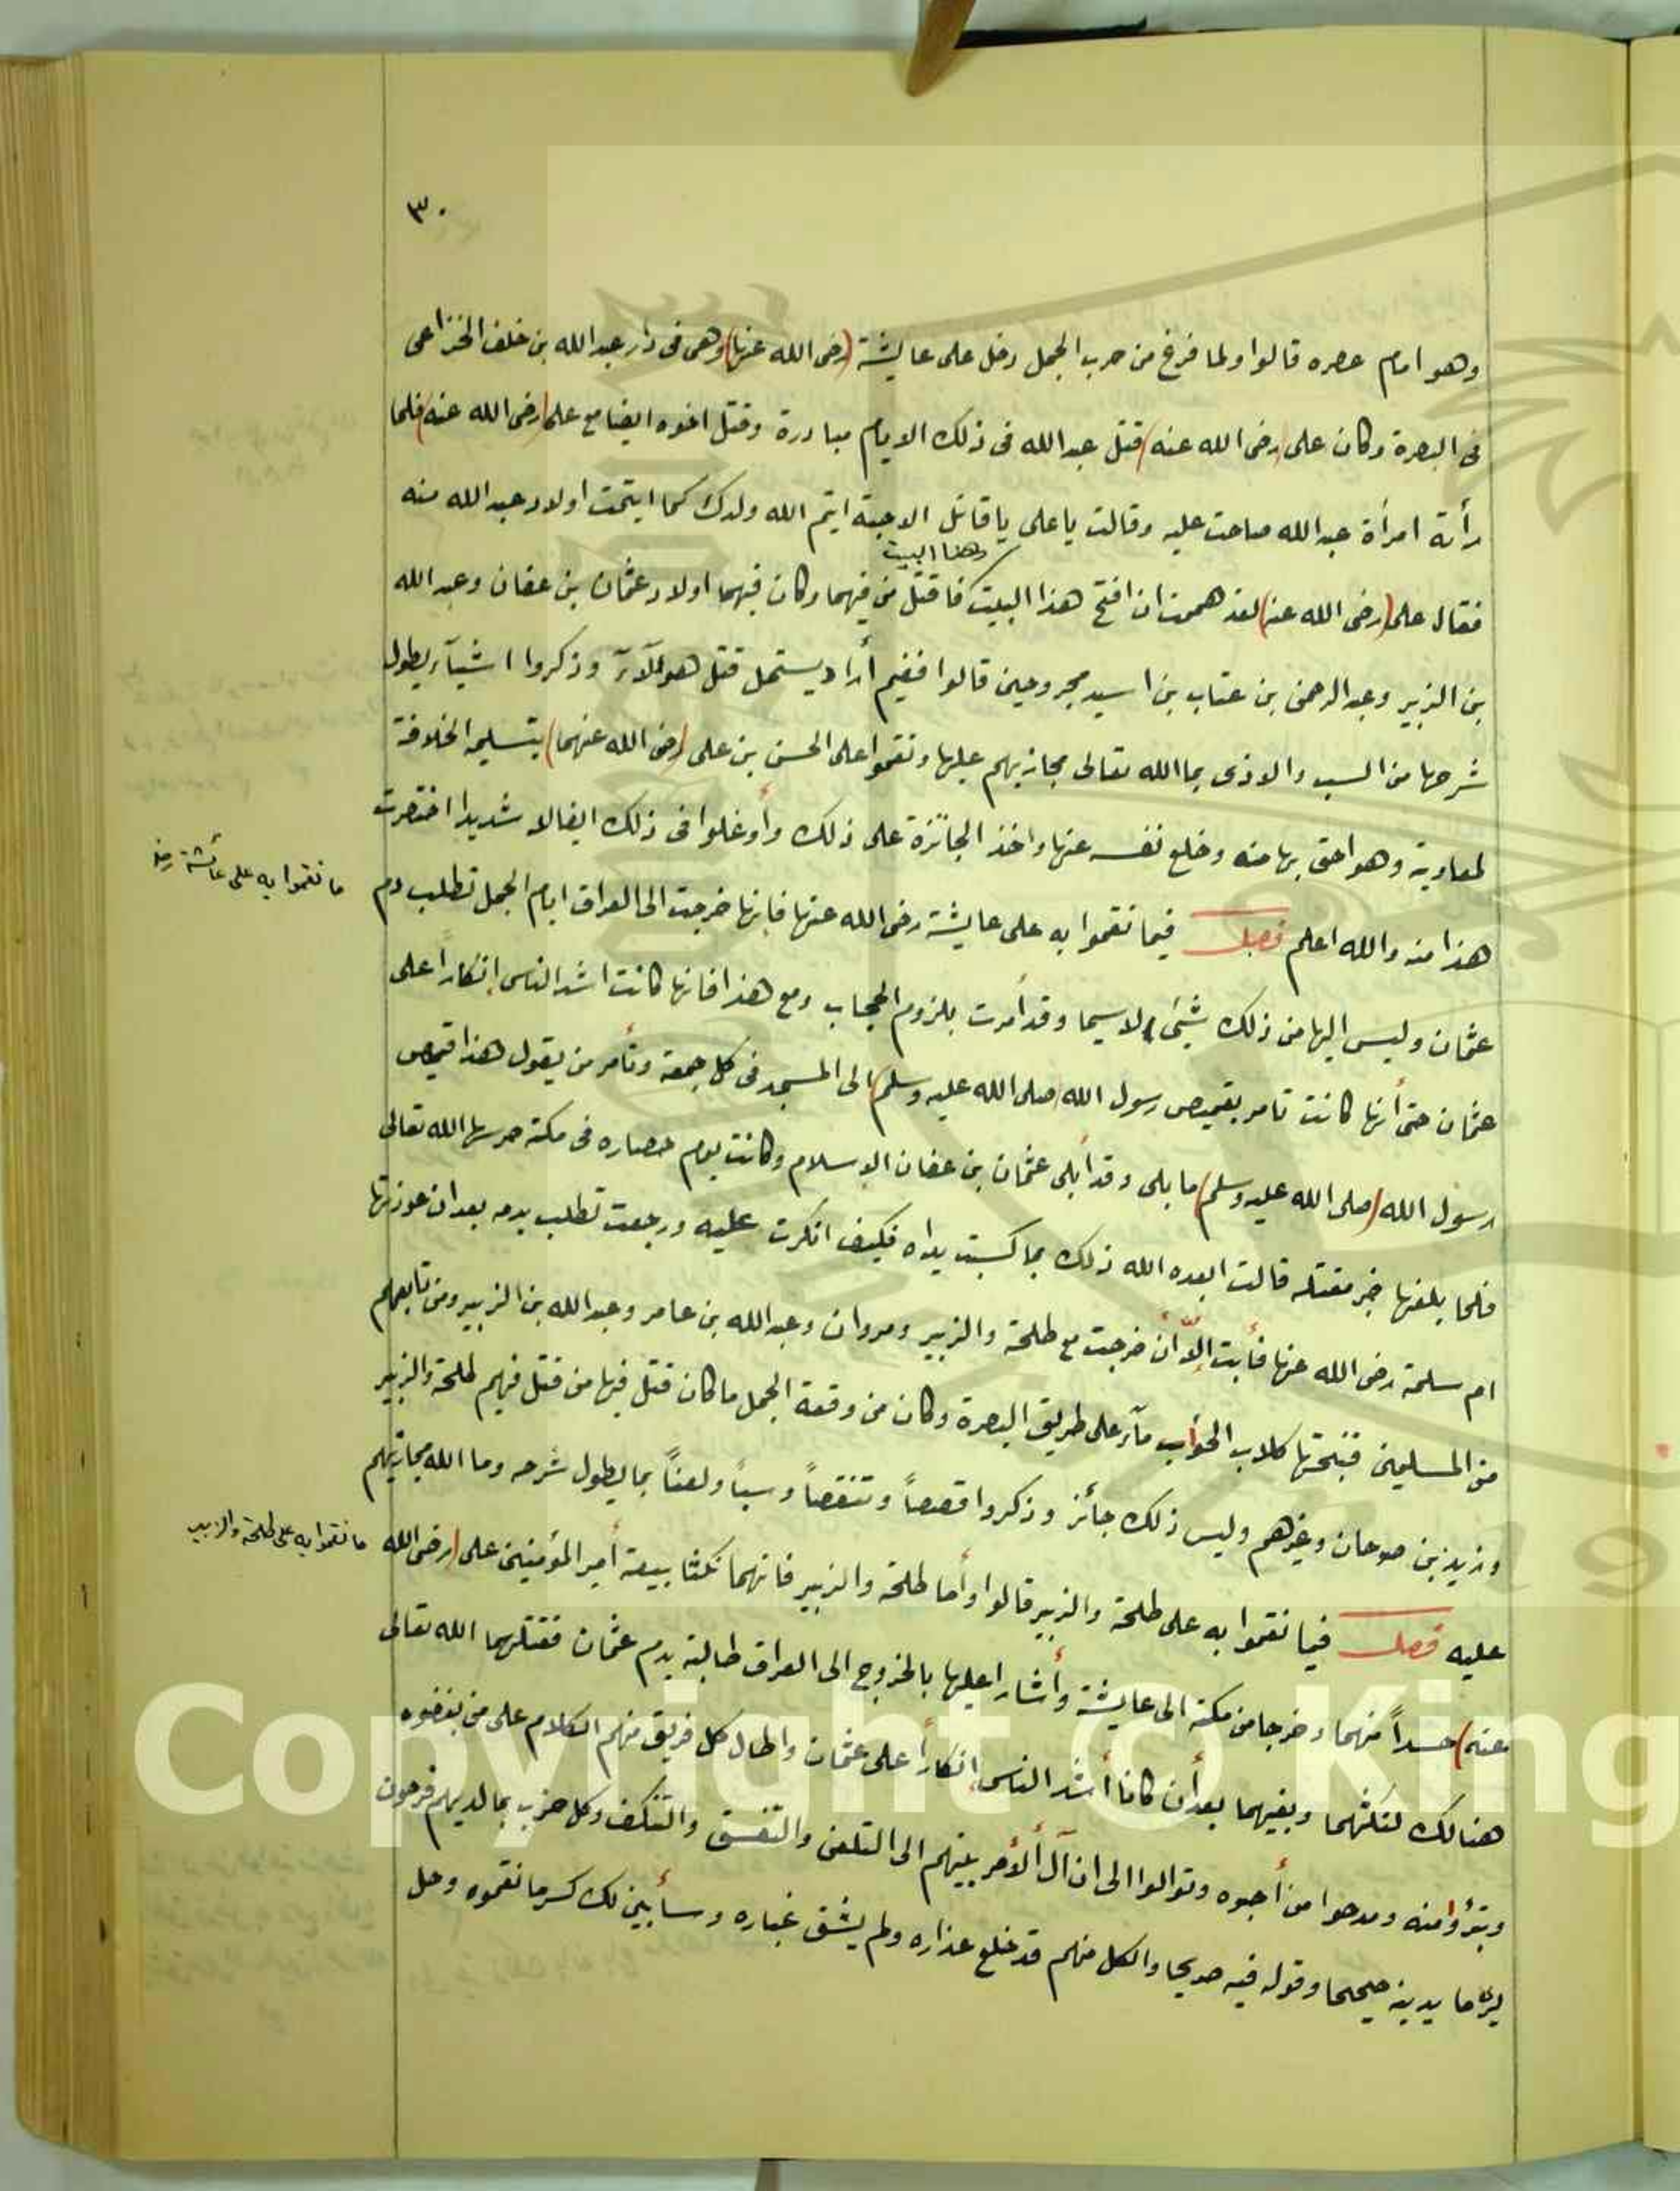 ٣٠
وهو امام عصره قالوا ولما فرغ من حرب الجمل دخل على عايشة (رضى الله عنها) وهى فى دار عبدالله بن خلف الخزاعى
فى البصرة وكان على (رضى الله عنه) قتل عبدالله فى ذلك الايام مبادرة وقتل اخوه ايضا مع على (رضى الله عنه) فلما
رأته امرأة عبدالله صاحت عليه وقالت يا على يا قاتل الاحبة ايتم الله ولدك كما ايتمت اولاد عبدالله منه
وهذا البيت
فقال على (رضى الله عنه) لقد هممت ان افتح هذا البيت فاقتل من فيهما وكان فيهما اولاد عثمان بن عفان وعبدالله
بن الزبير وعبدالرحمن بن عتاب بن اسيد مجروحين قالوا ففيم أراد يستحل قتل هوالآء وذكروا اشيآء يطول
شرحها من السب والاذى بما الله تعالى مجازيهم عليها ونقموا على الحسن بن على (رضى الله عنهما) بتسليمه الخلافة
لمعاوية وهو احق بها منه وخلع نفسه عنها واخذ الجائزة على ذلك وأوغلوا فى ذلك ايغالا شديدا اختصرت
هذا منه والله اعلم فصل فيما نقموا به على عايشة رضى الله عنها فانها خرجت الى العراق ايام الجمل تطلب دم
ما نقموا به على عائشة رضه
عثمان وليس اليها من ذلك شئ لاسيما وقد أمرت بلزوم الحجاب ومع هذا فانها كانت اشد الناس إنكارا على
عثمان حتى أنها كانت تامر بقميص رسول الله (صلى الله عليه وسلم) الى المسجد فى كل جمعة وتأمر من يقول هذا قميص
رسول الله (صلى الله عليه وسلم) ما بلى وقد أبلى عثمان بن عفان الاسلام وكانت يوم حصاره فى مكة حرسها الله تعالى
فلما بلغها خبر مقتله قالت ابعده الله ذلك بما كسبت يداه فكيف انكرت عليه ورجعت تطلب بدمه بعد ان
ام سلمة رضى الله عنها فأبت إلّا أن خرجت مع طلحة والزبير ومروان وعبدالله بن عامر وعبدالله بن الزبير ومن تابعهم
من المسلمين فنبحتها كلاب الحوأب مآء على طريق البصرة وكان من وقعة الجمل ما كان قتل فيها من قتل فيهم طلحة والزبير
وزيد بن صوحان وغيرهم وليس ذلك جائز وذكروا قصصاً وتنقصاً وسباً ولعناً بما يطول شرحه وما الله مجازيهم
عليه فصل فيما نقموا به على طلحة والزبير قالوا وأما طلحة والزبير فانهما نكثا بيعة أمير المؤمنين على (رضى الله
ما نقموا به على طلحة والزبير
عنه) حسداً منهما وخرجا من مكة الى عايشة وأشارا عليها بالخروج الى العراق طالبة بدم عثمان فقتلهما الله تعالى
هنالك لنكثهما وبغيهما بعد أن كانا أشد الناس إنكارأ على عثمان واطال كل فريق منهم الكلام على من بغضوه
وتبرؤا منه ومدحوا من أحبوه وتوالوا الى ان آل ألأمر بينهم الى التلعن والتفسق والتكفر وكل حزب بما لديهم فرحون
يرى ما يدينه صحيحا وقوله فيه صريحا والكل منهم قد خلع عذاره ولم يشق غباره وسأبين لك كسر ما نقموه وحل
Copyright © King